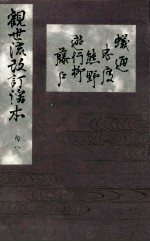 蟻通
忠度
熊野
遊行柳
藤戸
觀世流改訂謠本 内八